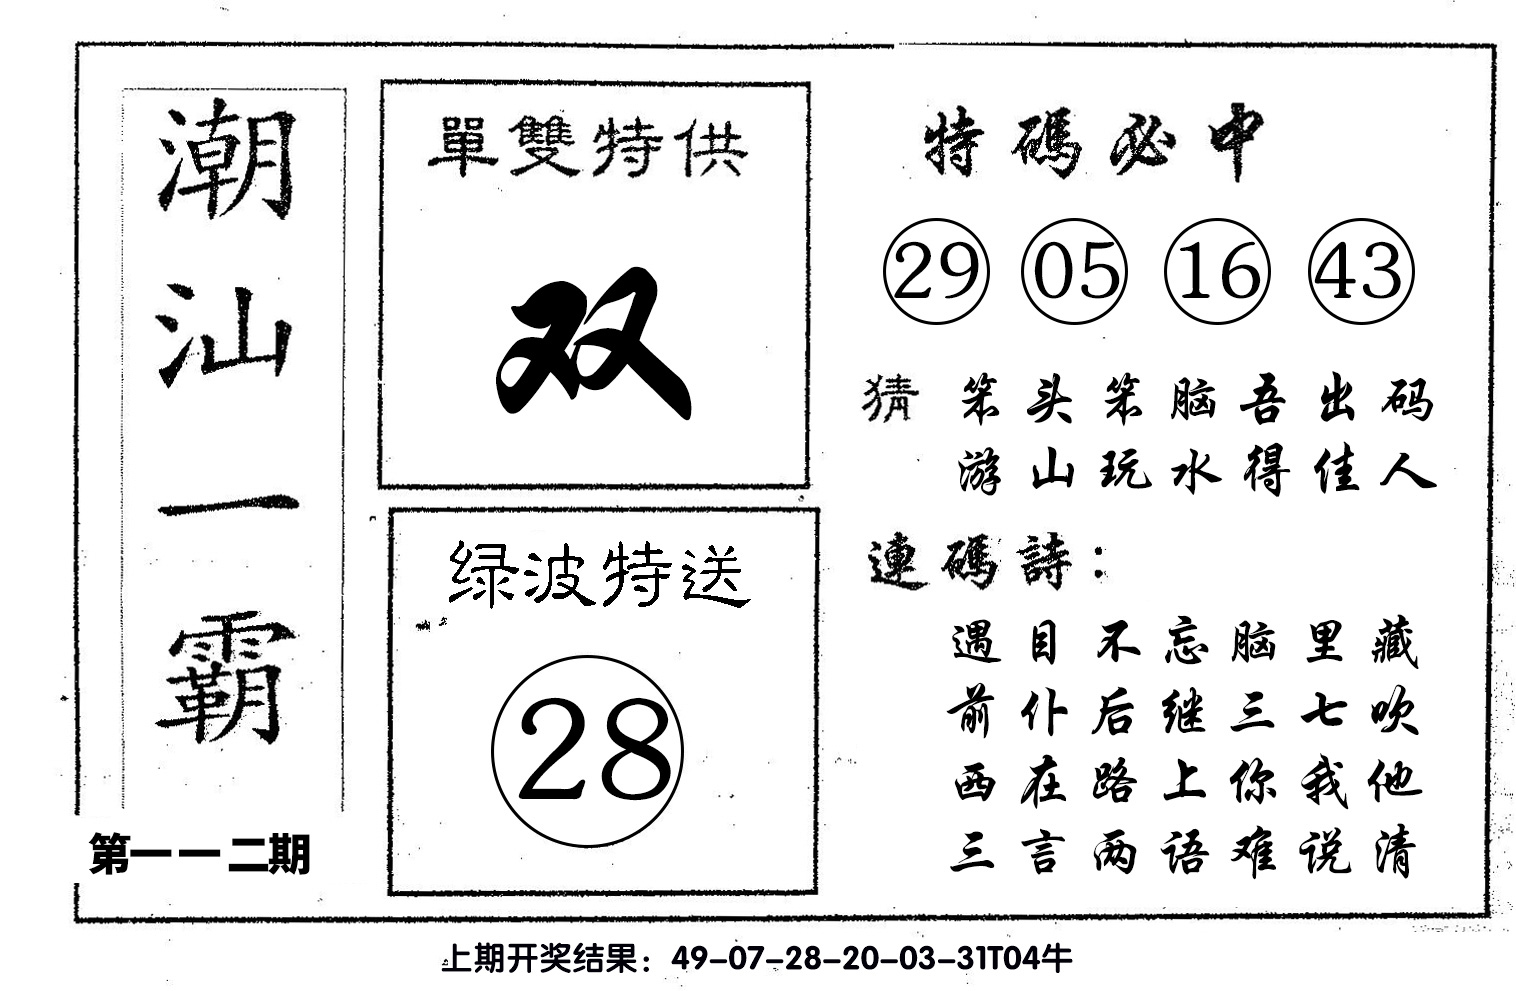 潮汕一霸
第一一二期
單雙特供
双
绿波特送
28
特碼必中
29 05 16 43
猜 笨头笨脑吾出码
游山玩水得佳人
連碼詩：
遇目不忘脑里藏
前仆后继三七吹
西在路上你我他
三言两语难说清
上期开奖结果：49-07-28-20-03-31T04牛